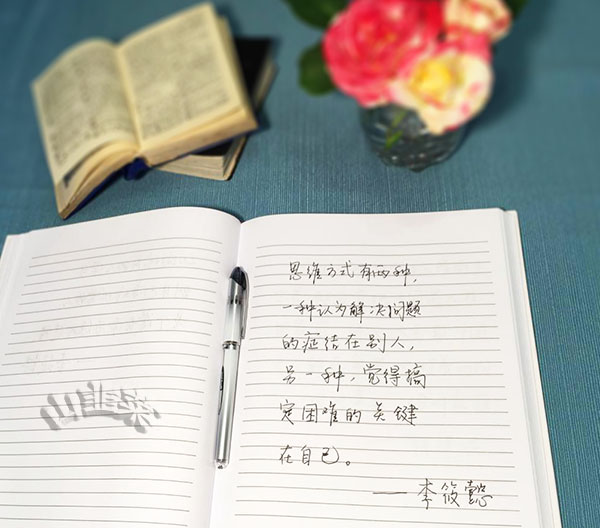 思维方式有两种，
一种认为解决问题
的症结在别人，
另一种，觉得搞
定困难的关键
在自己。
——李筱懿